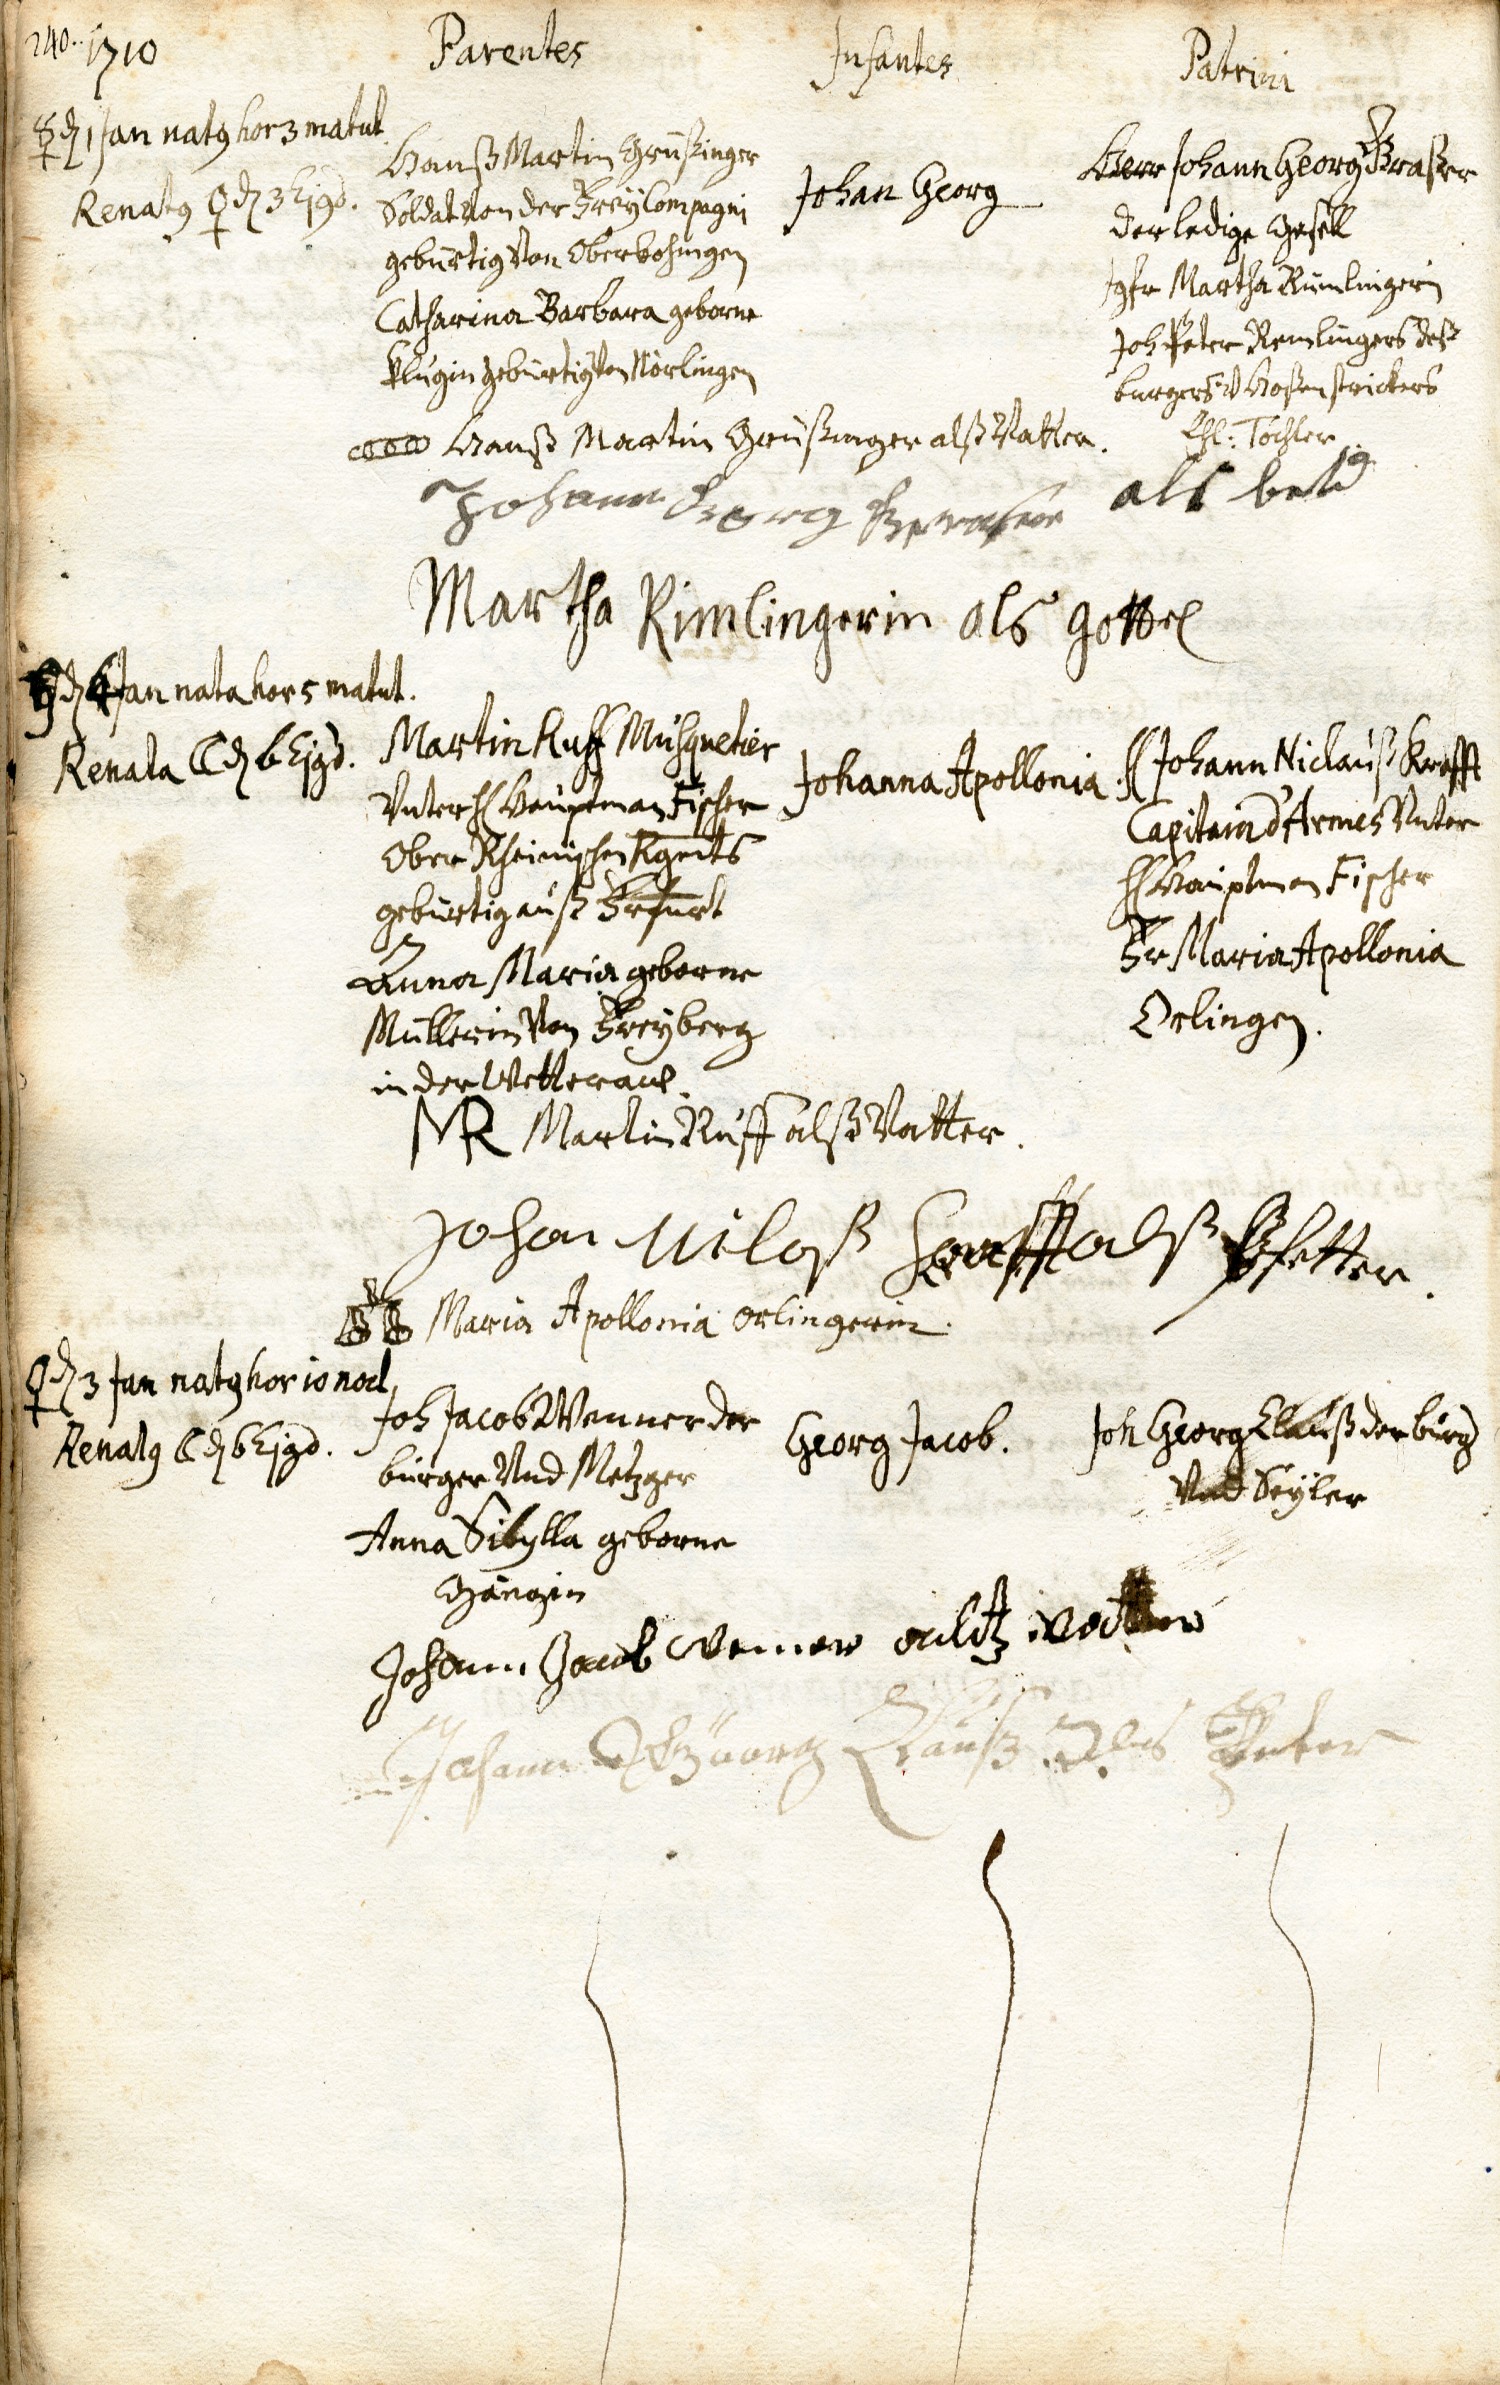 240. 1710
Parentes
Infantes
Patrini
d 1 Jan natq hor 3 matut
Renatq ♀ d 3 Ejqd.
Hanß Martin Greüßinger
Soldat Von der Frey Compagni
gebürtig Von Oberbohingen
Catharina Barbara geborne
Klugin gebürtig Von Nörlingen
Johan Georg
Herr Johann Georg Fraßer
der ledige Gesell
Jgfr Martha Rümlingerin
Joh Peter Remlingers deß
burgers V Hosenstrickers
Ehl: Tochter
Hanß Martin Greüßinger alß Vatter.
Johann Georg als
Martha Rimlingerin als gottel
d 4 Jan nata hor 5 matut.
Renata ☾ d 6 Ejqd.
Martin Ruff Musquetier
Unter H Hauptman Fischer
Ober Rheinischen Rgmts
gebürtig auß Erfurt
Anna Maria geborne
Müllerin Von Freyberg
in der Wetterau.
Johanna Apollonia
H Johann Niclauß Krafft
Capitain d'Armes Unter
H Hauptman Fischer
Fr Maria Apollonia
Orlingen.
MR Martin Ruff alß Vatter.
Johan Nicloß Krafft alß Pfetter.
Maria Apollonia Orlingerin.
♀ d 3 Jan natq hor 10 noct,
Renatq ☾ d 6 Ejqd.
Joh Jacob Wenner der
burger Und Metzger
Anna Sibylla geborne
Georg Jacob.
Joh Georg Clauß der burg
Und Seyler
Johann Jacob Wenner alß Vatter
Johann Georg Clauß Als